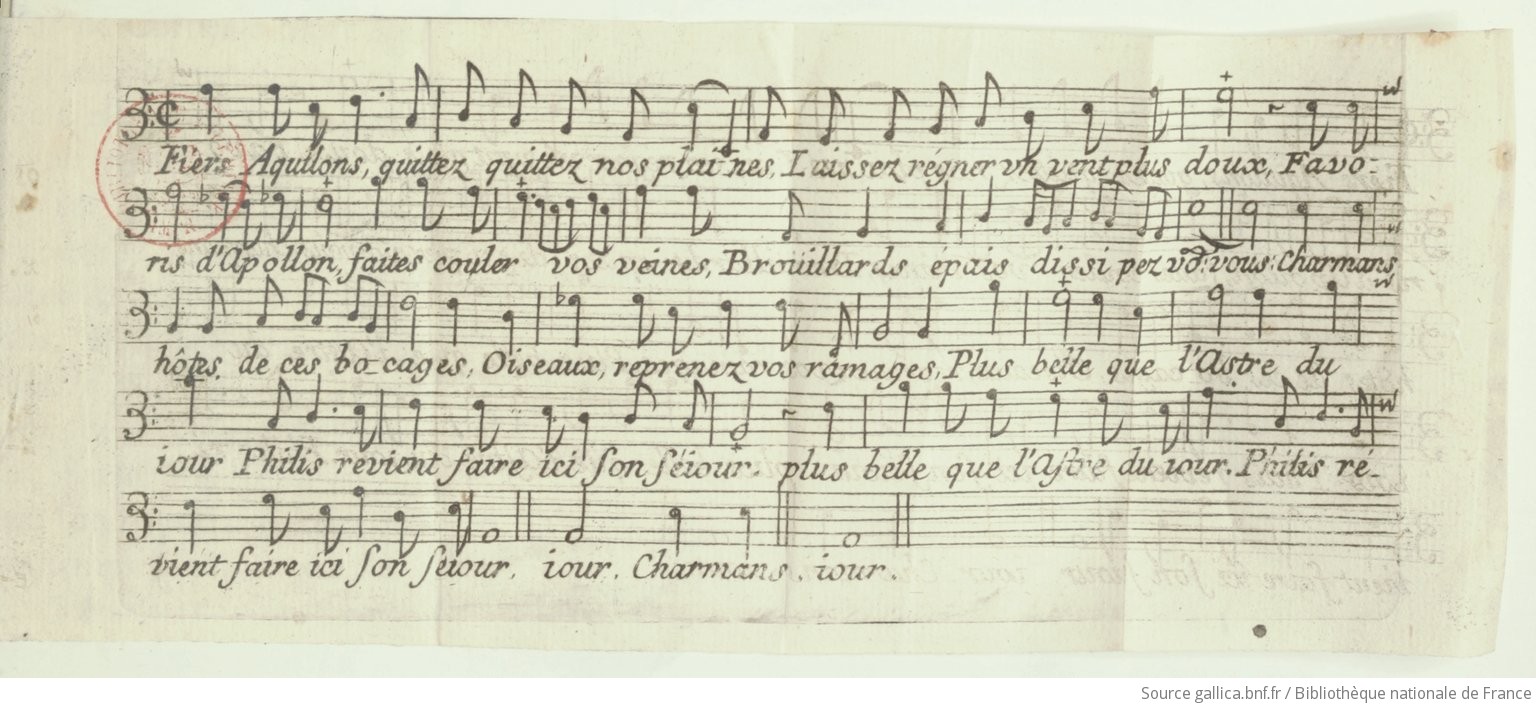 Fiers Aquilons, quittez quittez nos plaines, Laissez régner vn vent plus doux, Favo-
ris d'Apollon, faites couler vos veines, Brouillards épais dissi pez vo: vous: Charmans
hôtes de ces bo-cages, Oiseaux, reprenez vos ramages, Plus belle que l'Astre du
iour Philis revient faire ici son séiour. plus belle que l'Astre du iour. Philis ré-
vient faire ici son seiour. iour. Charmans. iour.
Source gallica.bnf.fr / Bibliothèque nationale de France